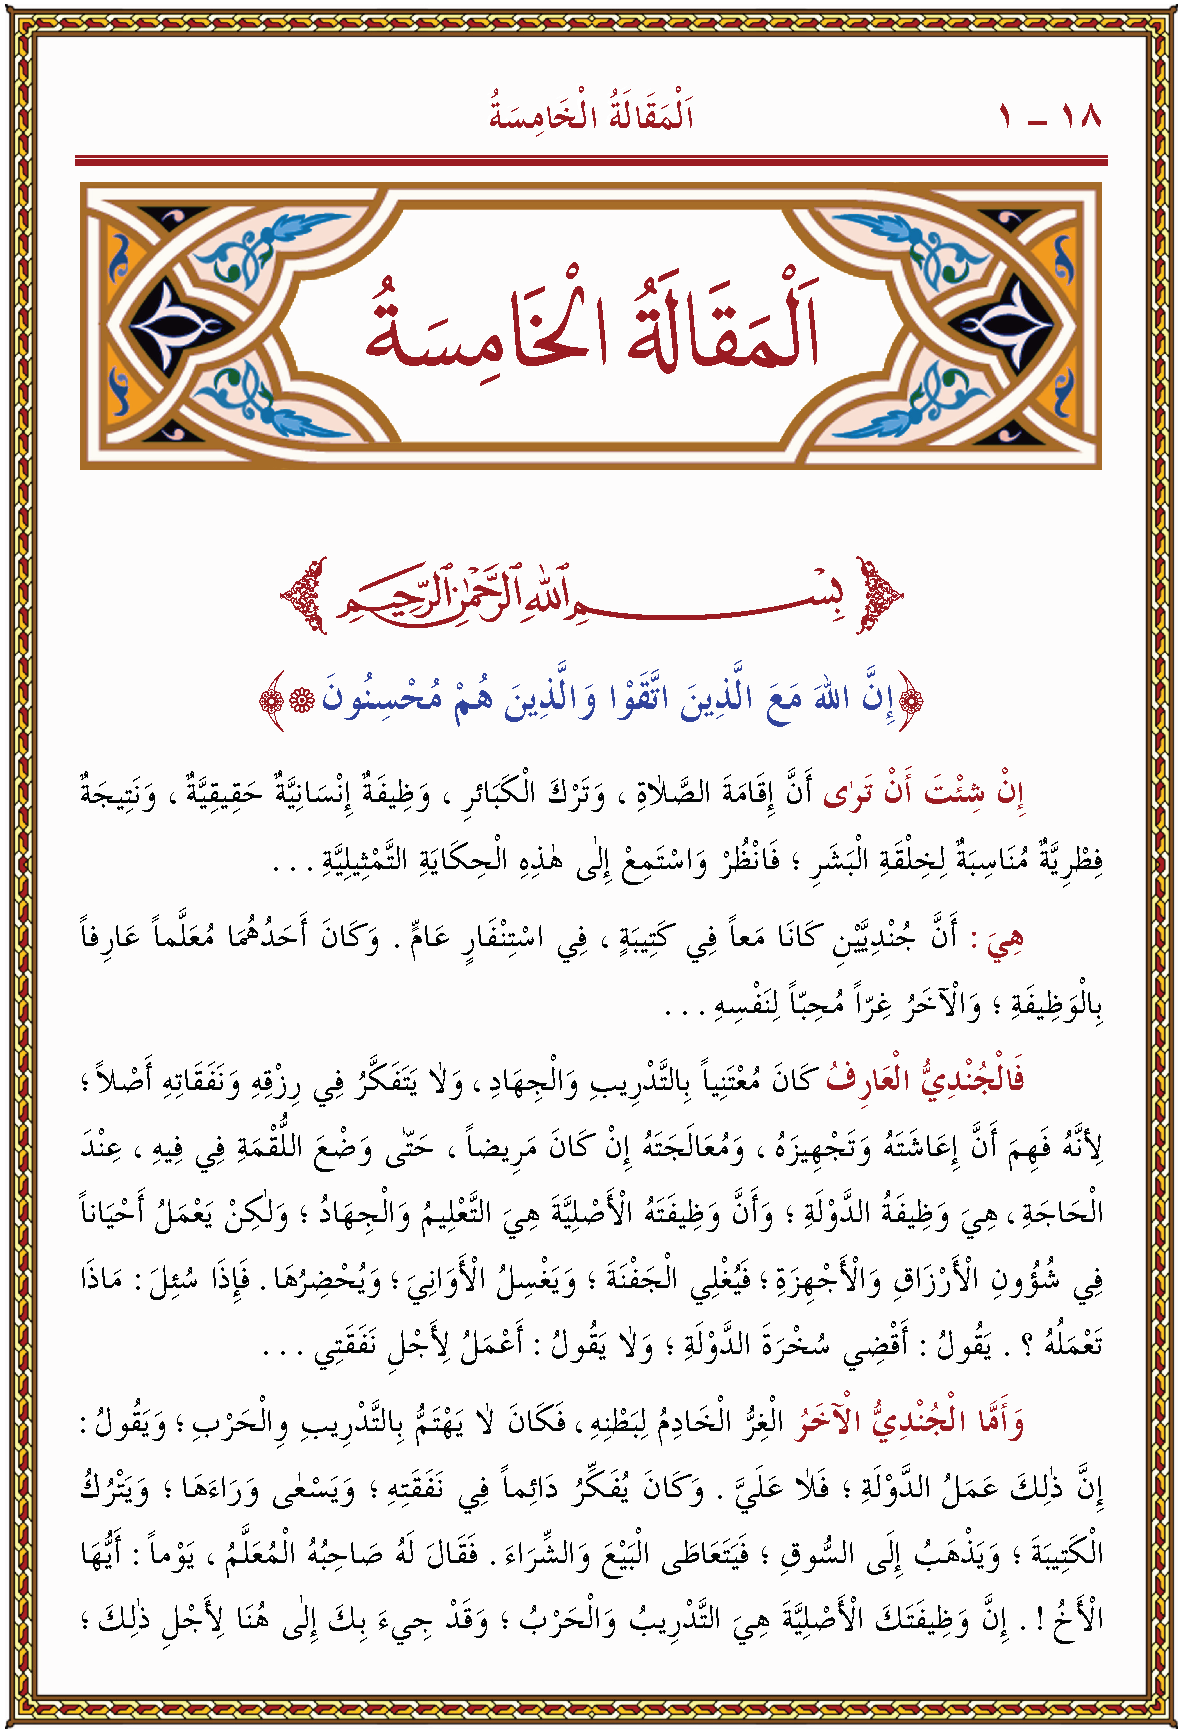 ١٨ – ١ اَلْمَقَالَةُ الْخَامِسَةُ
اَلْمَقَالَةُ الْخَامِسَةُ
بِسْمِ ٱللهِ ٱلرَّحْمٰنِ ٱلرَّحِيمِ
﴿إِنَّ اللهَ مَعَ الَّذِينَ اتَّقَوْا وَالَّذِينَ هُمْ مُحْسِنُونَ ۞﴾
إِنْ شِئْتَ أَنْ تَرٰى أَنَّ إِقَامَةَ الصَّلاٰةِ ، وَتَرْكَ الْكَبَائِرِ ، وَظِيفَةٌ إِنْسَانِيَّةٌ حَقِيقِيَّةٌ ، وَنَتِيجَةٌ
فِطْرِيَّةٌ مُنَاسِبَةٌ لِخِلْقَةِ الْبَشَرِ ؛ فَانْظُرْ وَاسْتَمِعْ إِلٰى هٰذِهِ الْحِكَايَةِ التَّمْثِيلِيَّةِ . . .
هِيَ : أَنَّ جُنْدِيَّيْنِ كَانَا مَعاً فِي كَتِيبَةٍ ، فِي اسْتِنْفَارٍ عَامٍّ . وَكَانَ أَحَدُهُمَا مُعَلَّماً عَارِفاً
بِالْوَظِيفَةِ ؛ وَالْآخَرُ غِرّاً مُحِبّاً لِنَفْسِهِ . . .
فَالْجُنْدِيُّ الْعَارِفُ كَانَ مُعْتَنِياً بِالتَّدْرِيبِ وَالْجِهَادِ ، وَلاٰ يَتَفَكَّرُ فِي رِزْقِهِ وَنَفَقَاتِهِ أَصْلاً ؛
لِأَنَّهُ فَهِمَ أَنَّ إِعَاشَتَهُ وَتَجْهِيزَهُ ، وَمُعَالَجَتَهُ إِنْ كَانَ مَرِيضاً ، حَتّٰى وَضْعَ اللُّقْمَةِ فِي فِيهِ ، عِنْدَ
الْحَاجَةِ ، هِيَ وَظِيفَةُ الدَّوْلَةِ ؛ وَأَنَّ وَظِيفَتَهُ الْأَصْلِيَّةَ هِيَ التَّعْلِيمُ وَالْجِهَادُ ؛ وَلٰكِنْ يَعْمَلُ أَحْيَاناً
فِي شُؤُونِ الْأَرْزَاقِ وَالْأَجْهِزَةِ ؛ فَيُغْلِي الْجَفْنَةَ ؛ وَيَغْسِلُ الْأَوَانِيَ ؛ وَيُحْضِرُهَا . فَإِذَا سُئِلَ : مَاذَا
تَعْمَلُهُ ؟ . يَقُولُ : أَقْضِي سُخْرَةَ الدَّوْلَةِ ؛ وَلاٰ يَقُولُ : أَعْمَلُ لِأَجْلِ نَفَقَتِي . . .
وَأَمَّا الْجُنْدِيُّ الْآخَرُ الْغِرُّ الْخَادِمُ لِبَطْنِهِ ، فَكَانَ لاٰ يَهْتَمُّ بِالتَّدْرِيبِ وِالْحَرْبِ ؛ وَيَقُولُ :
إِنَّ ذٰلِكَ عَمَلُ الدَّوْلَةِ ؛ فَلاٰ عَلَيَّ . وَكَانَ يُفَكِّرُ دَائِماً فِي نَفَقَتِهِ ؛ وَيَسْعٰى وَرَاءَهَا ؛ وَيَتْرُكُ
الْكَتِيبَةَ ؛ وَيَذْهَبُ إِلَى السُّوقِ ؛ فَيَتَعَاطَى الْبَيْعَ وَالشِّرَاءَ . فَقَالَ لَهُ صَاحِبُهُ الْمُعَلَّمُ ، يَوْماً : أَيُّهَا
الْأَخُ ! . إِنَّ وَظِيفَتَكَ الْأَصْلِيَّةَ هِيَ التَّدْرِيبُ وَالْحَرْبُ ؛ وَقَدْ جِيءَ بِكَ إِلٰى هُنَا لِأَجْلِ ذٰلِكَ ؛